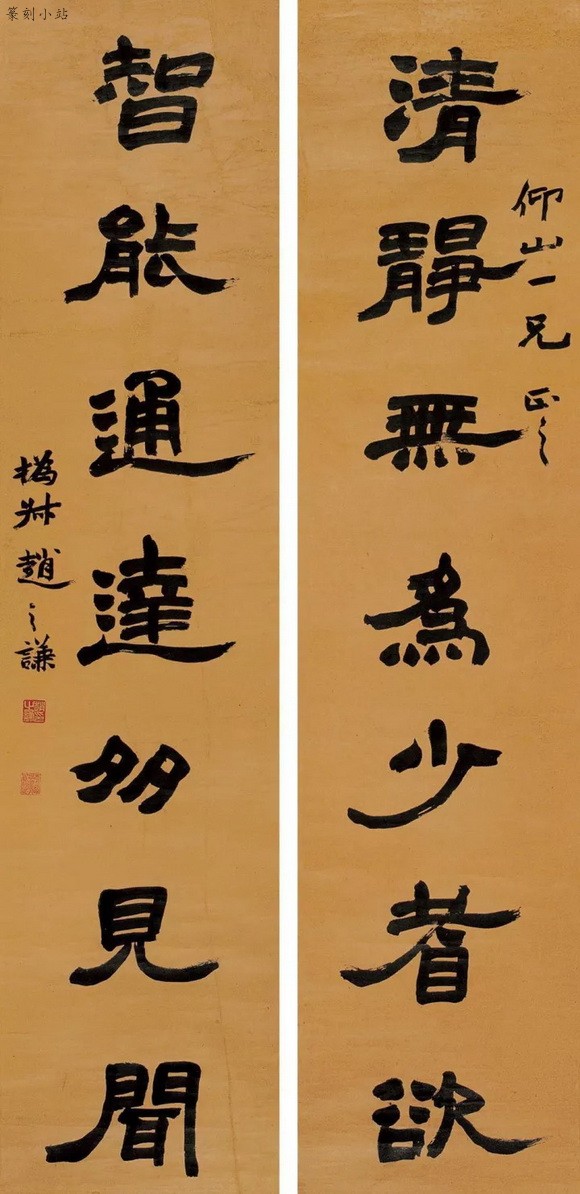 篆刻小站
仰山一兄 正之
清靜無為少耆欲
智能通達多見聞
撝叔趙之謙